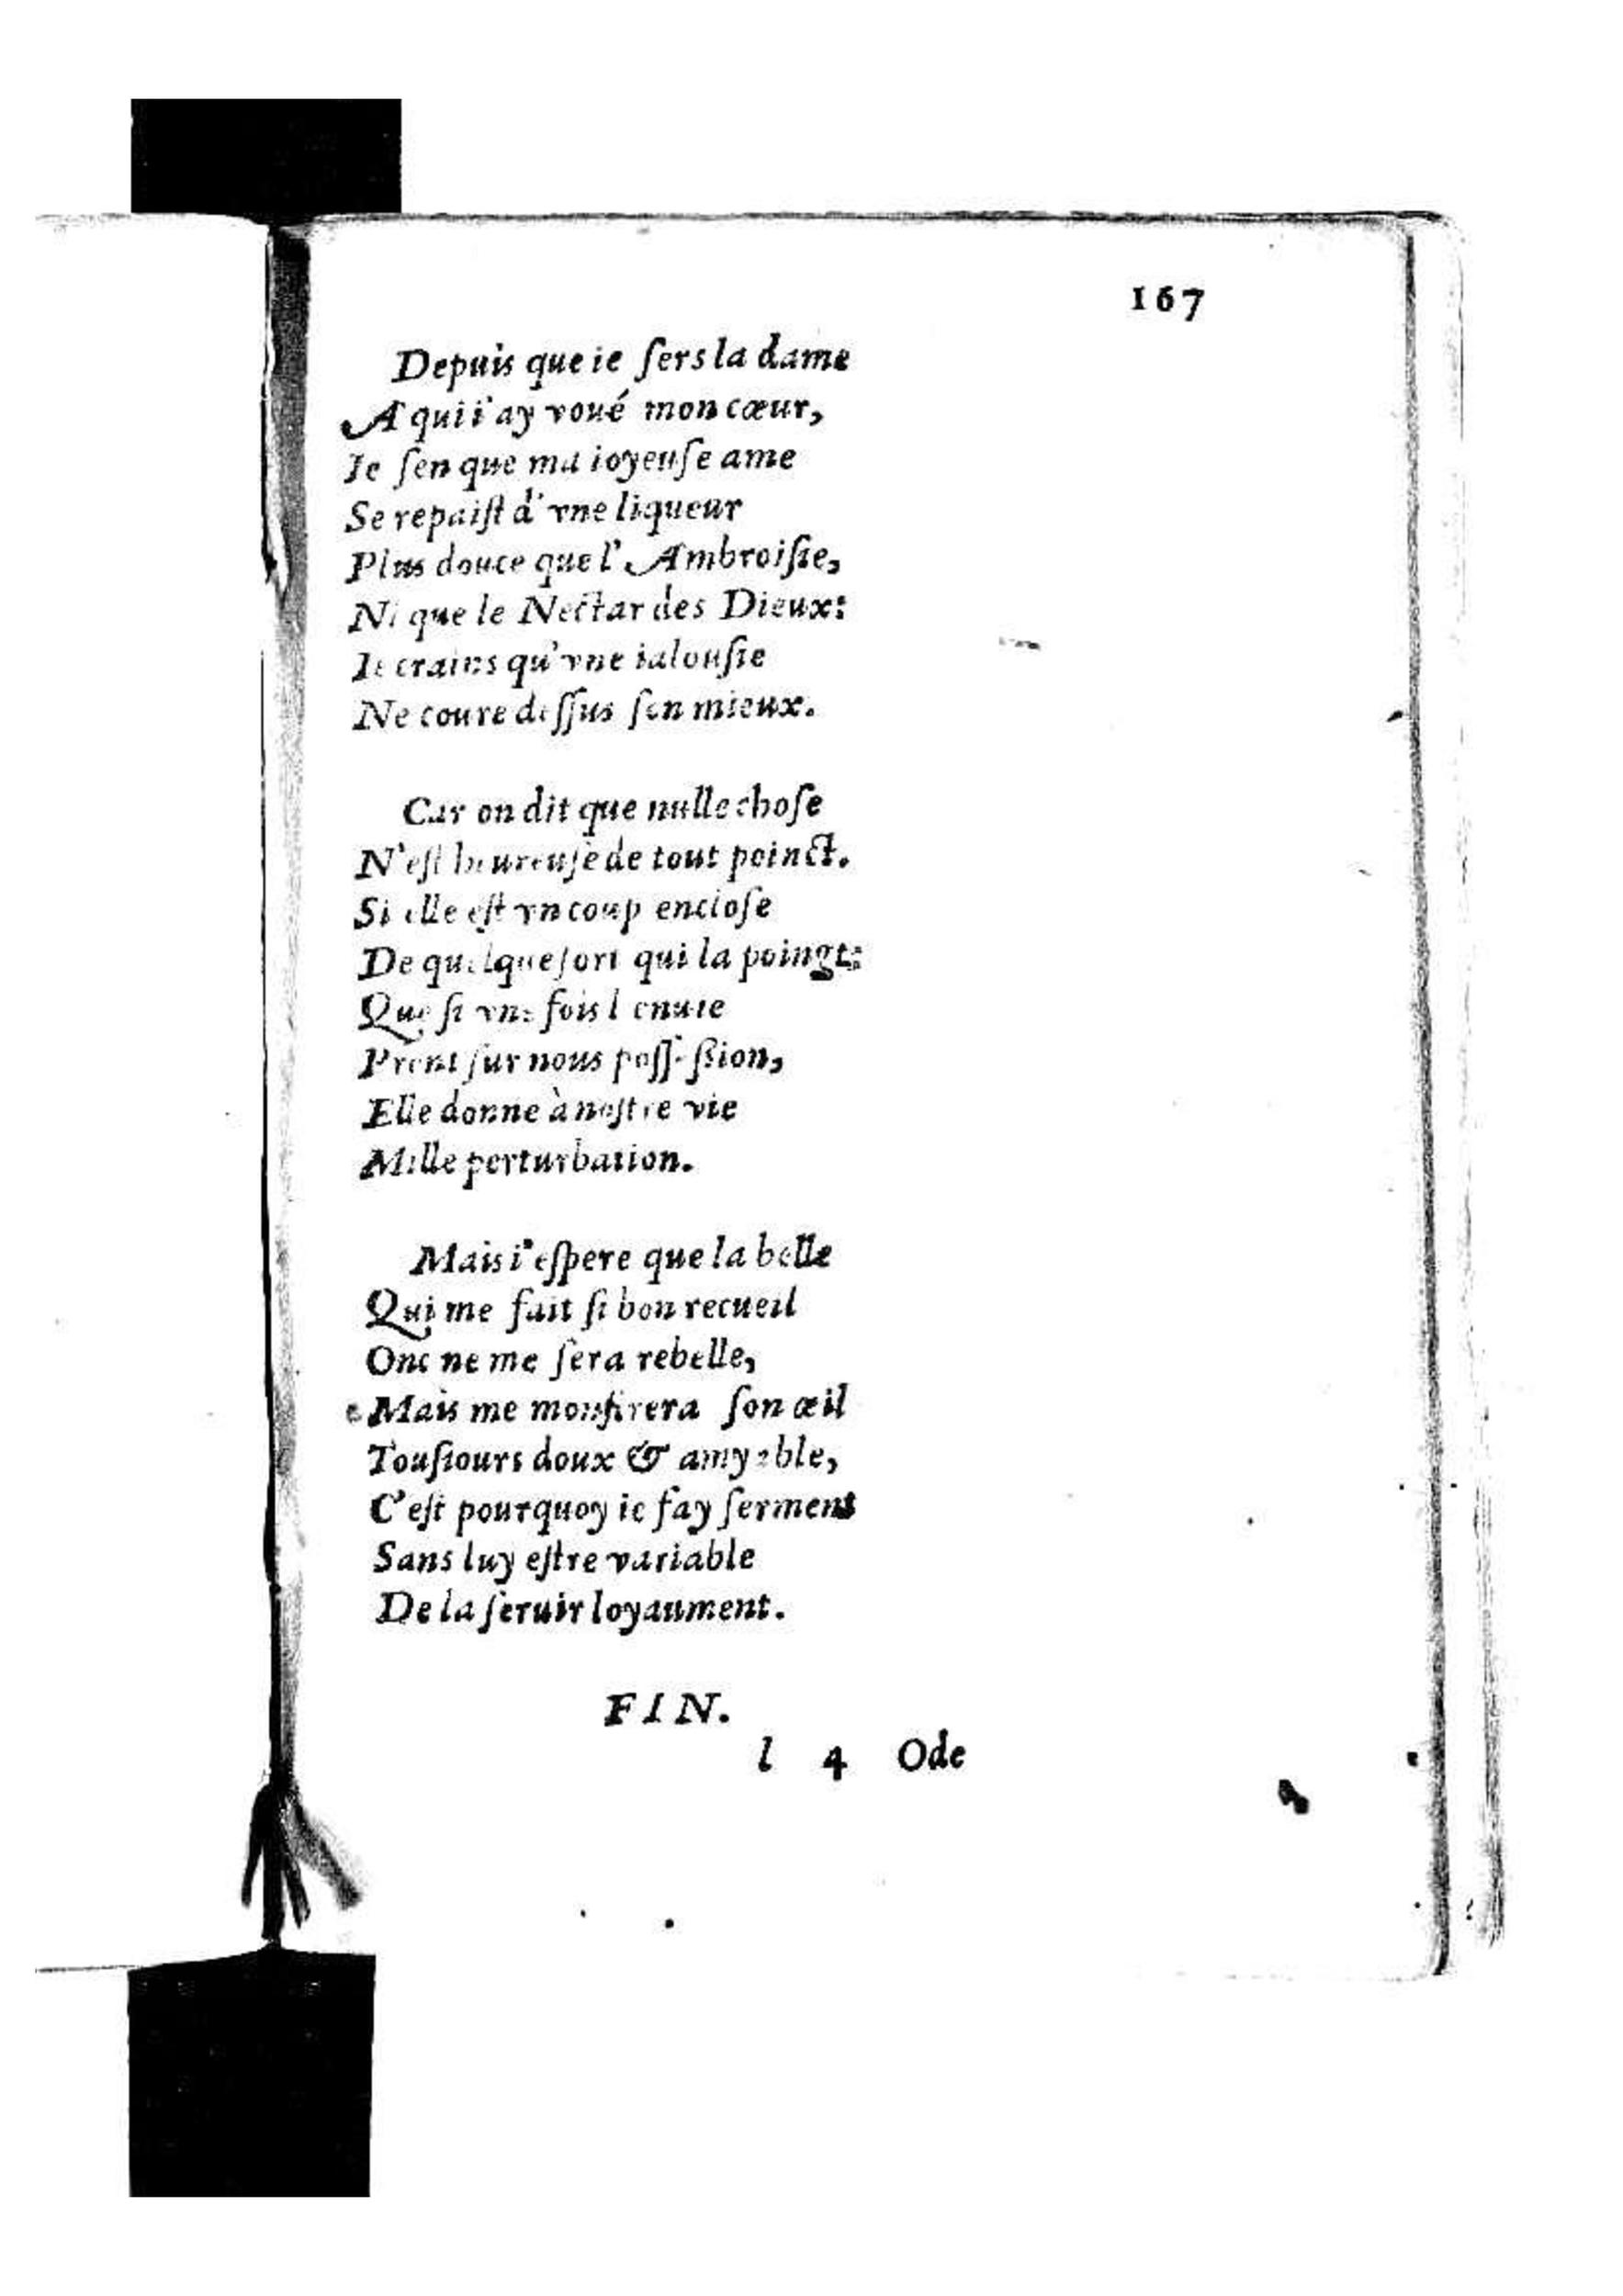 167
Depuis que ie ſers la dame
A qui i'ay voué mon cœur,
Ie ſen que ma ioyeuſe ame
Se repaiſt d'vne liqueur
Plus douce que l'Ambroiſie,
Ni que le Nectar des Dieux:
Ie crains qu'vne ialouſie
Ne coure deſſus ſon mieux.
Car on dit que nulle choſe
N'eſt heureuſe de tout poinct.
Si elle eſt vn coup encloſe
De quelque ſort qui la poingt:
Que ſi vne fois l'enuie
Prent ſur nous poſſeſſion,
Elle donne à noſtre vie
Mille perturbation.
Mais i'eſpere que la belle
Qui me fait ſi bon recueil
Onc ne me ſera rebelle,
Mais me monſtrera ſon œil
Touſiours doux & amyable,
C'eſt pourquoy ie fay ſerment
Sans luy eſtre variable
De la ſeruir loyaument.
FIN.
l 4 Ode